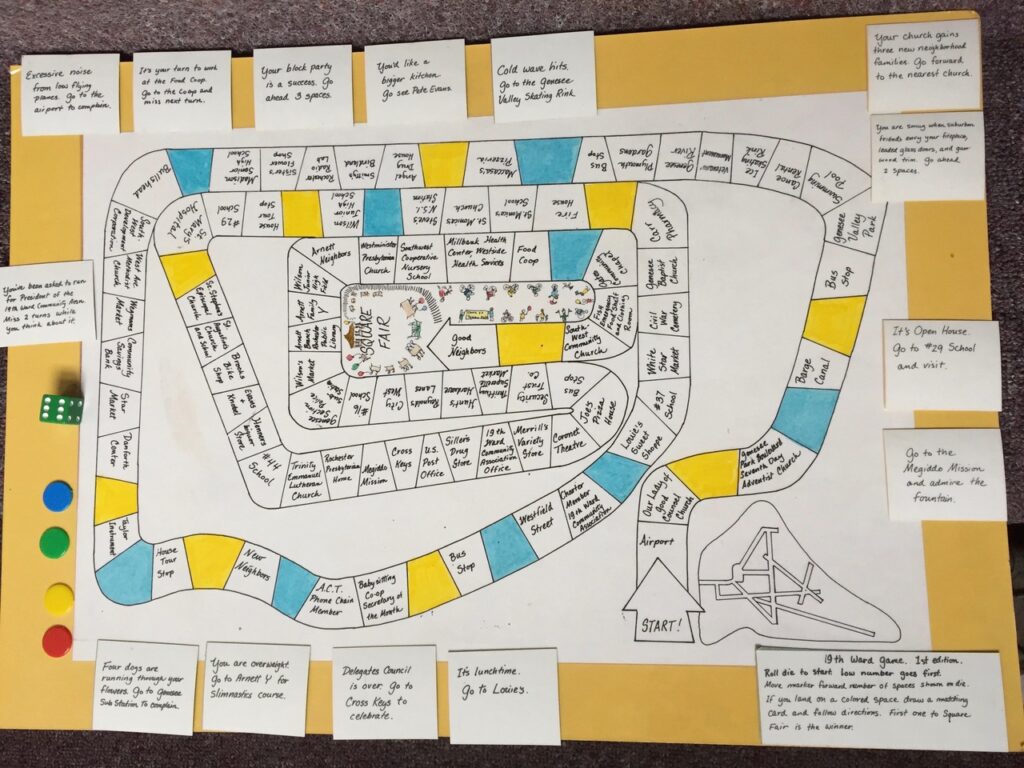 Excessive noise
from low flying
planes. Go to the
airport to complain.
It's your turn to work
at the Food Coop.
Go to the Coop and
miss next turn.
Your block party
is a success. Go
ahead 3 spaces.
You'd like a
bigger kitchen.
Go see Pete Evans.
Cold wave hits.
Go to the Genesee
Valley Skating Rink
Your church gains
three new neighborhood
families. Go forward
to the nearest church.
You are smug when suburban
friends envy your fireplace,
leaded glass doors, and gum
wood trim. Go ahead
2 spaces.
You've been asked to run
for President of the
19th Ward Community Assn.
Miss 2 turns while
you think about it.
It's Open House.
Go to #29 School
and visit.
Go to the
Megiddo Mission
and admire the
fountain.
START!
Airport
Our Lady of
Good
Counsel
Church
Genesee
Park Boulevard
Seventh Day
Adventist Church
Barge
Canal
Bus
Stop
Genesee
Valley
Park
Swimming
Pool
Canoe
Rental
Ice
Skating
Rink
Veterans
Monument
Genesee
River
Plymouth
Gardens
Bus
Stop
Reservia
Angel
Drug
House
Smitty's
Birdland
Rochester
Radio
Lab
Sister's
Flower
Shop
Madison
Senior
High
School
Bullshead
South
West
Development
Corporation
West Ave
Methodist
Church
Wegmans
Market
Community
Savings
Bank
Star
Market
Danforth
Center
Taylor
Instrument
House
Tour
Stop
New
Neighbors
A.C.T.
Phone Chain
Member
Babysitting
Co-op
Secretary of
the Month
Bus
Stop
Westfield
Street
Charter
Member
19th Ward
Community
Association
Louie's
Sweet
Shoppe
#37
School
White
Star
Market
Civil
War
Cemetery
Genesee
Baptist
Church
Cox
Pharmacy
Fire
House
St. Monica's
School
St. Monica's
Church
Stowell
N.S.I.
Station
Wilson
Junior
High
School
House
Tour
Stop
#29
School
St.
Mary's
Hospital
St. Stephen's
Episcopal
Church
St.
Augustine
Church
and School
Brooks
Bike
Shop
Evans
+
Kraedel
Honners
Liquor
Store
#44
School
Trinity
Emmanuel
Lutheran
Church
Rochester
Presbyterian
Home
Megiddo
Mission
Cross
Keys
U.S.
Post
Office
Siller's
Drug
Store
19th
Ward
Community
Association
Office
Merrill's
Variety
Store
Coronet
Theatre
Joe's
Pizza
House
Bus
Stop
Security
Trust
Co.
Thrifty
Sagarette
Market
Hunt's
Hardware
Reynolds
Lanes
West
City
#16
School
Genesee
Section
Police
Sub
Station
Wilson's
Market
Arnett
Branch
Public
Library
Arnett
Family
Y
Wilson
Junior
High
Field
Arnett
Neighbors
Westminster
Presbyterian
Church
Southwest
Cooperative
Nursery
School
Millbank Health
Center, Westside
Health Services
Food
Coop
Community
Chapel
Fish
Emergency
Food Shelf
and Clothing
Room
South
West
Community
Church
Good
Neighbors
SQUARE
FAIR
Four dogs are
running through your
flowers. Go to Genesee
Sub Station to complain.
You are overweight.
Go to Arnett Y for
Slimnastics course.
Delegates Council
is over. Go to
Cross Keys to
celebrate.
It's lunchtime.
Go to Louie's.
19th Ward game. 1st edition.
Roll die to start. Low number goes first.
Move marker forward number of spaces shown on die.
If you land on a colored space draw a matching
card and follow directions. First one to Square
Fair is the winner.